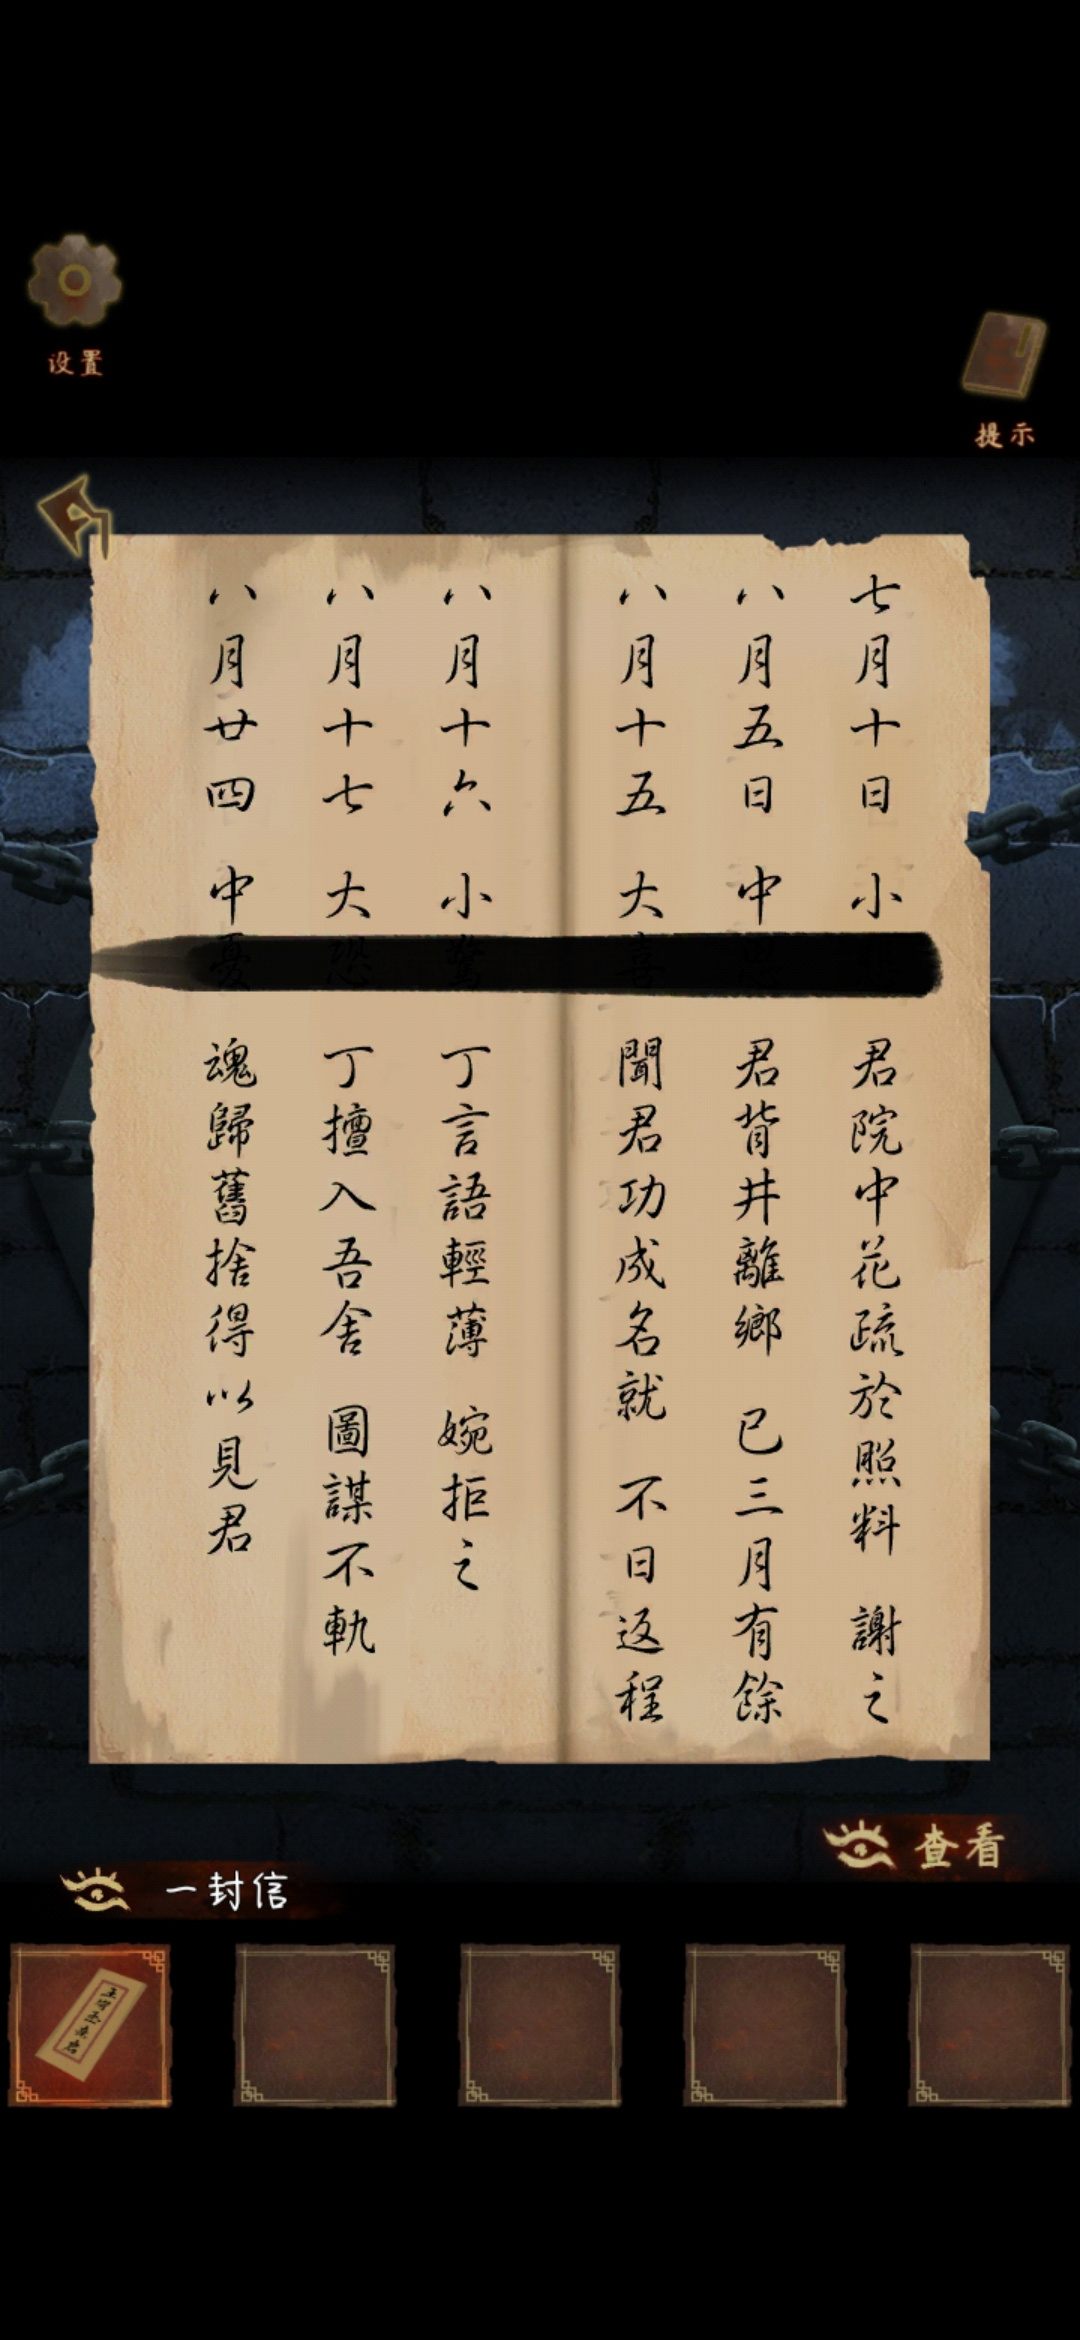 设置
提示
七月十日 小 君院中花疏於照料 謝之
八月五日 中思 君背井離鄉 已三月有餘
八月十五 大喜 聞君功成名就 不日返程
八月十六 小驚 丁言語輕薄 婉拒之
八月十七 大恐 丁擅入吾舍 圖謀不軌
八月廿四 中憂 魂歸舊捨得以見君
查看
一封信